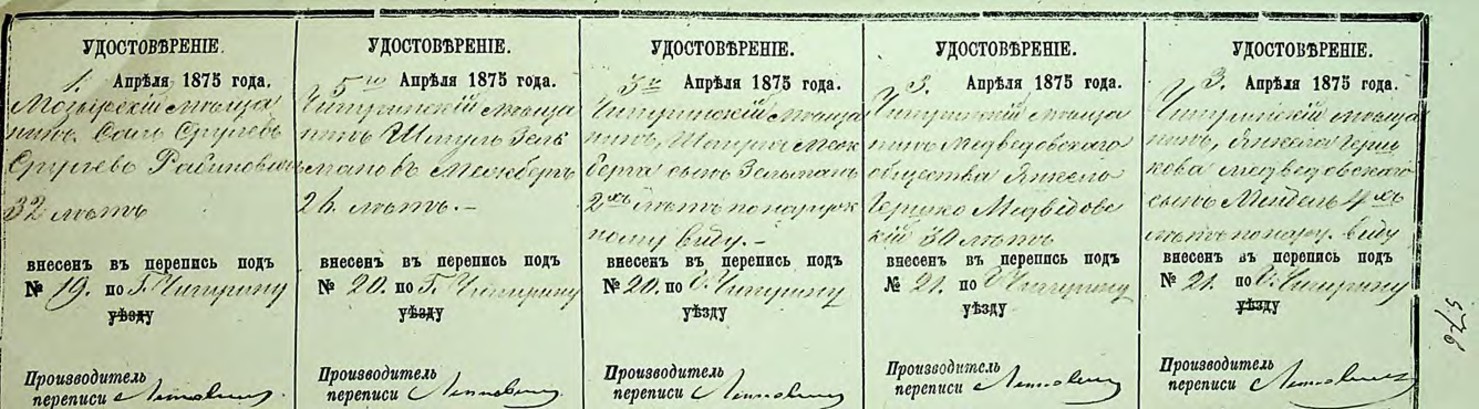 УДОСТОВѢРЕНІЕ.
1. Апрѣля 1875 года.
мѣща
нинъ
32 лѣтъ
внесенъ въ перепись подъ
№ 19. по Г. Чигирину
уѣзду
Производитель
переписи
УДОСТОВѢРЕНІЕ.
5го Апрѣля 1875 года.
Чигиринскій мѣща
нинъ Шмуль Зель
мановъ
26. лѣтъ.-
внесенъ въ перепись подъ
№ 20. по Г. Чигирину
уѣзду
Производитель
переписи
УДОСТОВѢРЕНІЕ.
Апрѣля 1875 года.
Чигиринскій мѣща
нинъ,
берга сынъ Зельманъ
2хъ лѣтъ по наруж
ному виду.-
внесенъ въ перепись подъ
№ 20. по Г. Чигирину
уѣзду
Производитель
переписи
УДОСТОВѢРЕНІЕ.
3. Апрѣля 1875 года.
Чигиринскій мѣща
нинъ Медведовскаго
общества Янкель
Гершко Медвѣдовс
кій 30 лѣтъ
внесенъ въ перепись подъ
№ 21. по Г. Чигирину
уѣзду
Производитель
переписи
УДОСТОВѢРЕНІЕ.
3. Апрѣля 1875 года.
Чигиринскій мѣща
нинъ, Янкеля Герш
кова Медведовскаго
сынъ Мендель 4хъ
лѣтъ по наруж. виду
внесенъ въ перепись подъ
№ 21. по Г. Чигирину
уѣзду
Производитель
переписи